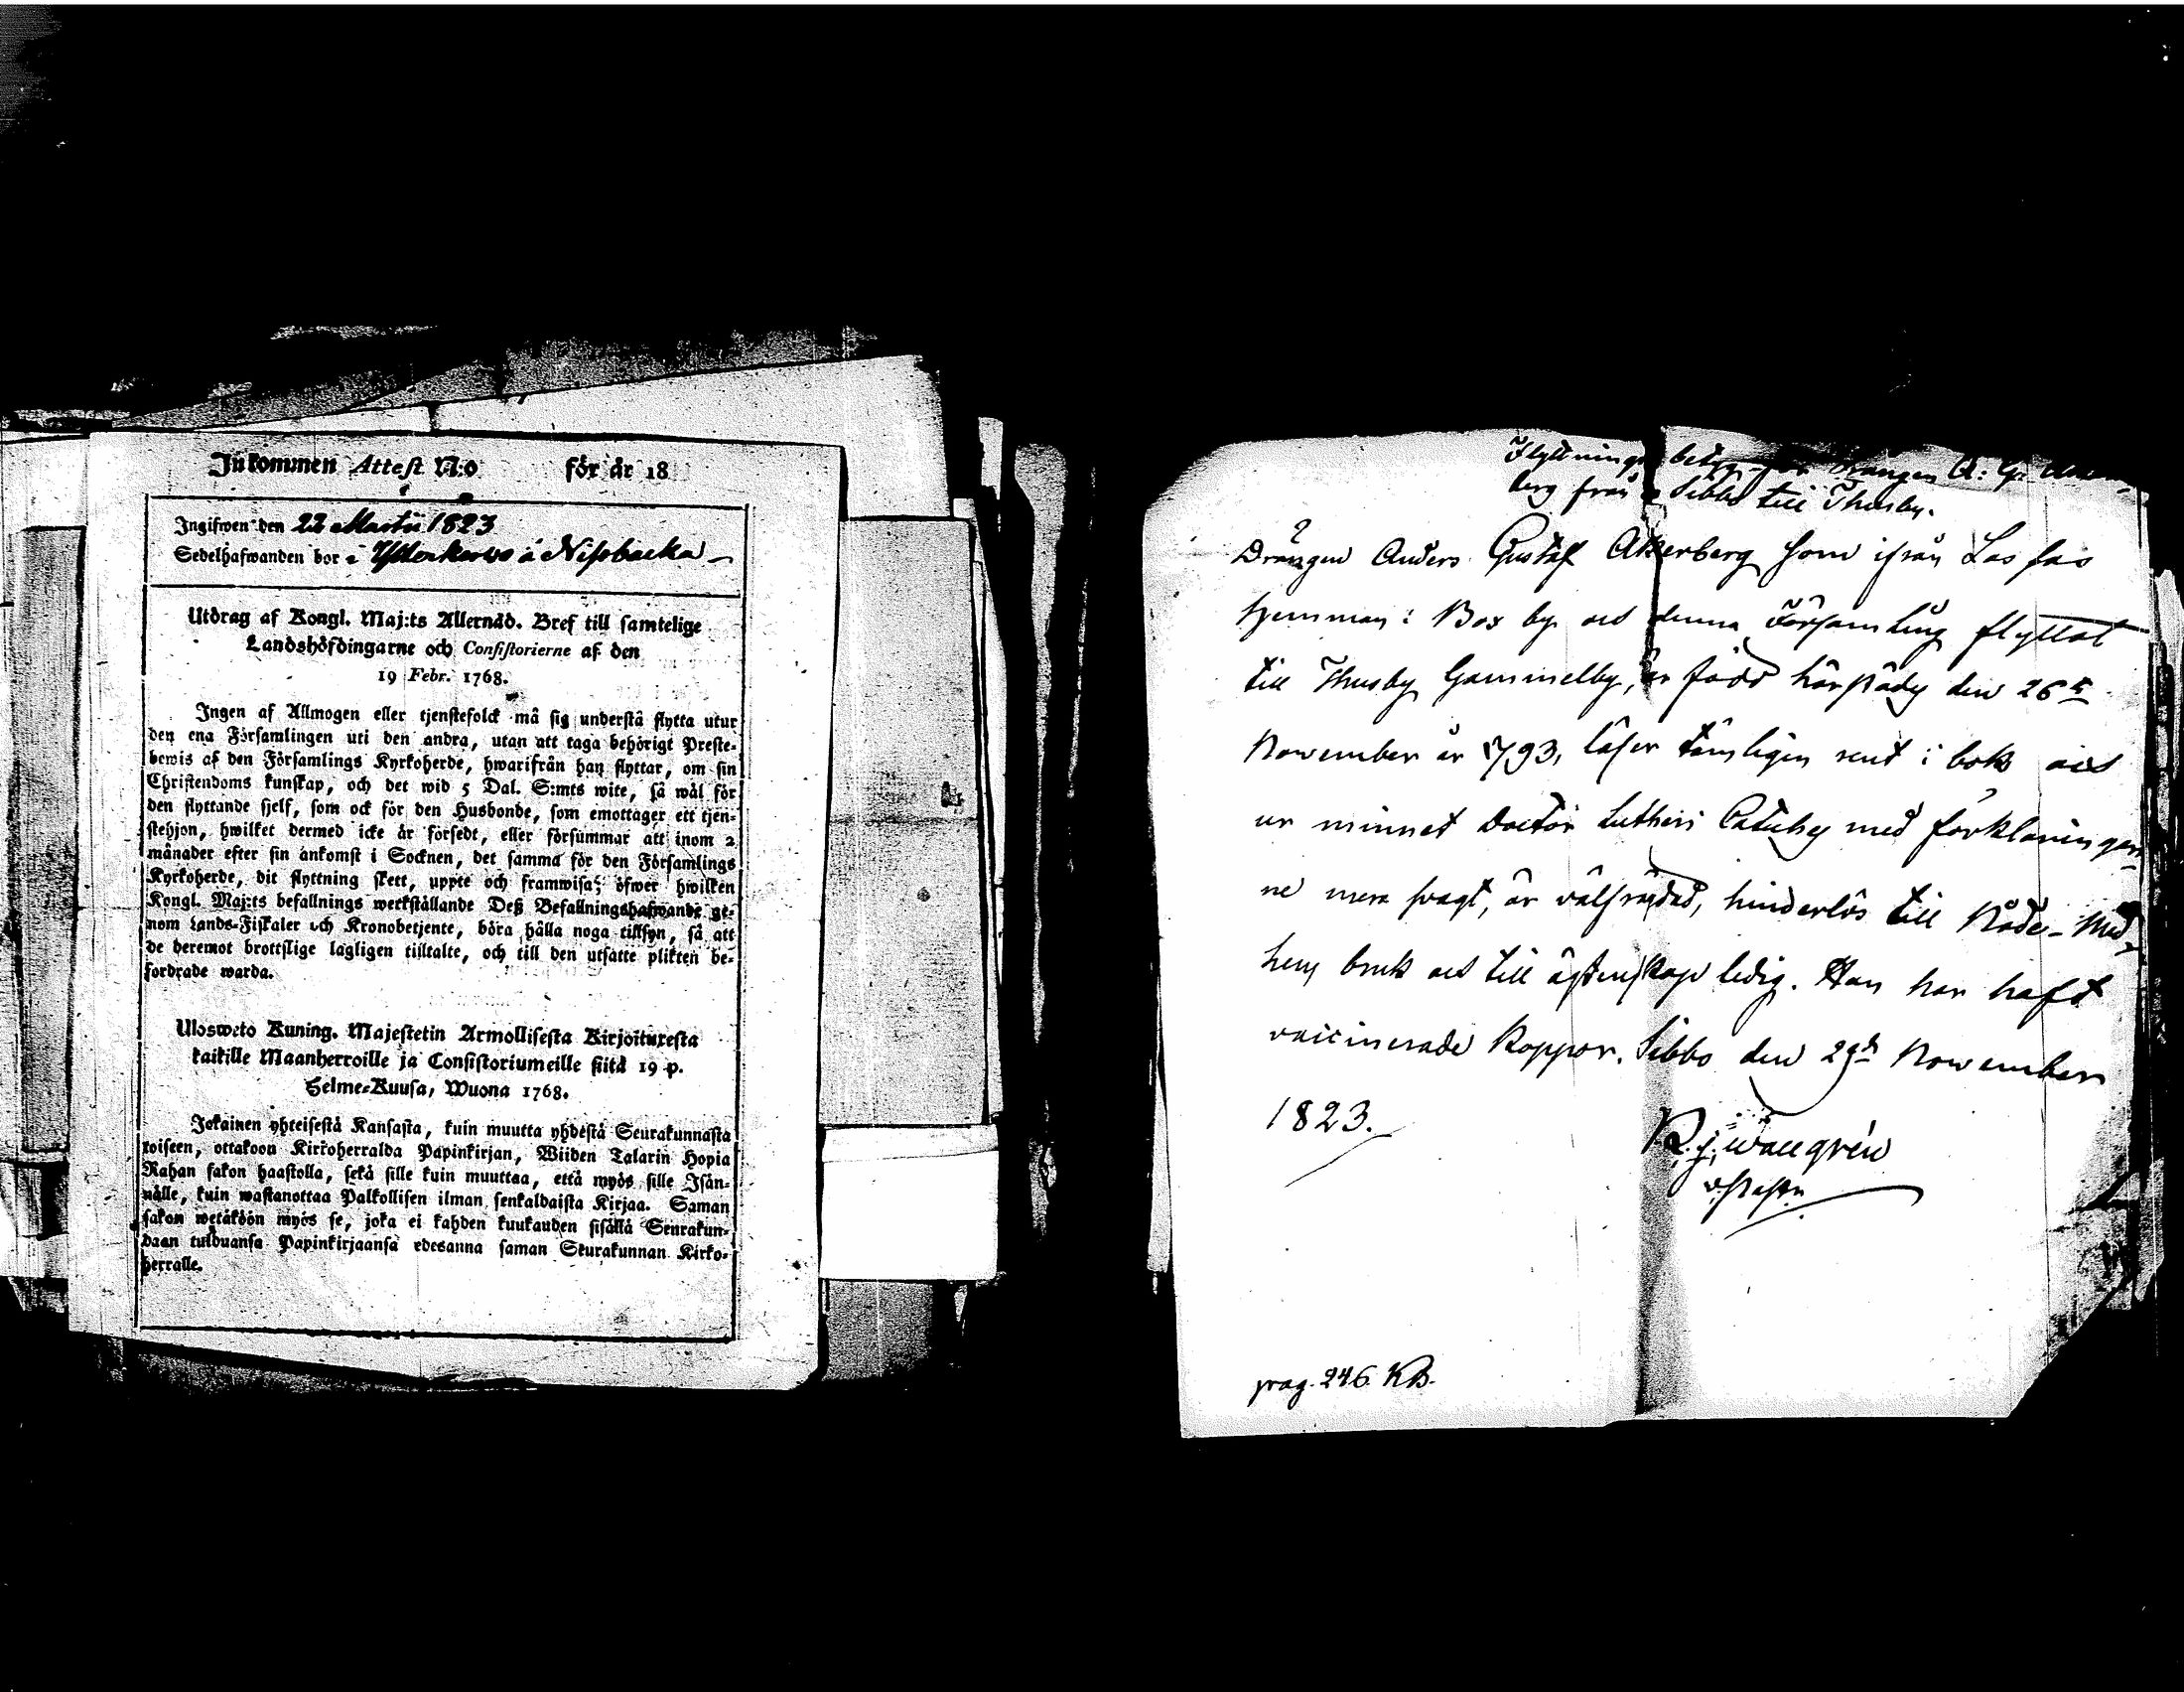 Inkommen Attest N:o för år 18
Ingifwen den 22 Martii 1823
Sedelhafwanden bor å Nissbacka
Utdrag af Kongl. Maj:ts Allernåd. Bref till samtelige
Landshöfdingarne och Consistorierne af den
19 Febr. 1768.
Ingen af Allmogen eller tjenstefolck må sig understå flytta utur
den ena Församlingen uti den andra, utan att taga behörigt Preste-
bewis af den Församlings Kyrkoherde, hwarifrån han flyttar, om sin
Christendoms kunskap, och det wid 5 Dal. S:mts wite, så wäl för
den flyttande sjelf, som ock för den Husbonde, som emottager ett tjen-
stehjon, hwilket dermed icke är försedt, eller försummar att inom 2
månader efter sin ankomst i Socknen, det samma för den Församlings
Kyrkoherde, dit flyttning skett, uppte och framwisa; öfwer hwilken
Kongl. Maj:ts befallnings werkställande Deß Befallningshafwande ge-
nom Lands-Fiskaler och Kronobetjente, böra hålla noga tillsyn, så att
de deremot brottslige lagligen tilltalte, och till den utsatte plikten be-
fordrade warda.
Ulosweto Kuning. Majestetin Armollisesta Kirjoituxesta
kaikille Maanherroille ja Consistoriumeille siitä 19 p.
Helme-Kuusa, Wuona 1768.
Jokainen yhteisestä Kansasta, kuin muutta yhdestä Seurakunnasta
toiseen, ottakoon Kirkoherralda Papinkirjan, Wiiden Talarin Hopia
Rahan sakon haastolla, sekä sille kuin muuttaa, että myös sille Isän-
nälle, kuin wastanottaa Palkollisen ilman senkaldaista Kirjaa. Saman
sakon wetäköön myös se, joka ei kahden kuukauden sisällä Seurakun-
daan tulduansa Papinkirjaansa edesanna saman Seurakunnan Kirko-
herralle.
Flyttnings betyg för Drängen A: G: Åker-
berg från Sibbo till Thusby.
Drängen Anders Gustaf Åkerberg som ifrån Lassas
hemman i Box by och denna Församling flyttat
till Thusby Gammelby, är född härstädes den 26
November år 1793, läser tämligen rent i bok och
ur minnet Doctor Lutheri Catiches med förklaringar-
ne mera svagt, är välfrägdad, hinderlös till Nåde-Med-
lens bruk och till ägtenskap ledig. Han har haft
vaccinerade Koppor. Sibbo den 29de November
1823.
R. J. Wallgrén
v. Pastor
pag. 246. KB.